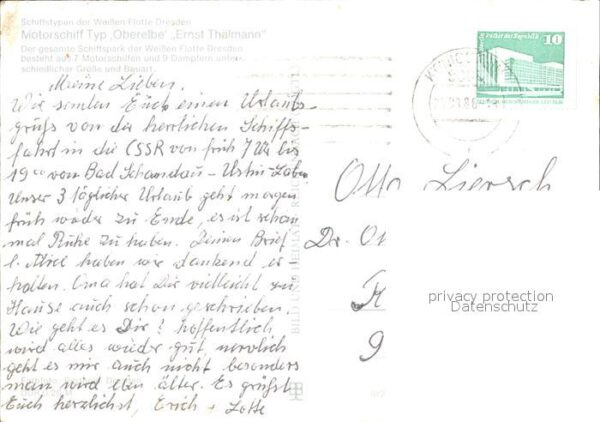 Schiffstypen der Weißen Flotte Dresden
Motorschiff Typ „Oberelbe“ „Ernst Thälmann“
Der gesamte Schiffspark der Weißen Flotte Dresden
besteht aus 7 Motorschiffen und 9 Dampfern unter-
schiedlicher Größe und Bauart.
Meine Lieben.
Wir senden Euch einen Urlaubs-
grüß von der herrlichen Schiffs-
fahrt in die CSSR von früh 7 Uhr bis
19 00 von Bad Schandau – Ustin-Labem
Unser 3 täglicher Urlaub geht morgen
früh wieder zu Ende, es ist schon
mal Ruhe zu haben. Deinen Brief
l. Alice haben wir dankend er-
halten. Oma hat Dir vielleicht zu
Hause auch schon geschrieben.
Wie geht es Dir? hoffentlich
wird alles wieder gut, nervlich
geht es mir auch nicht besonders
man wird eben älter. Es grüßt
Euch herzlichst, Erich + Lotte
BILD UND HEIMAT
10
Otto Liersch
Dr. Ot
K
9
privacy protection
Datenschutz